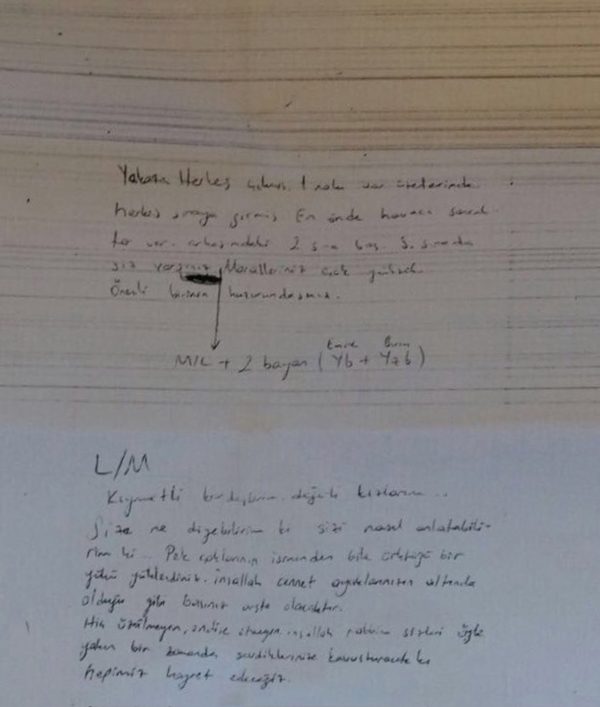 Herkes 1 nolu var üzerlerinde
herkes sıraya girmiş En önde havacı
var. arkasındaki 2 sıra boş. 3. sırada
siz varsınız Moralleriniz çok yüksek.
Önemli birinin huzurundasınız.
Emire
M/L + 2 bayan (Yb + Yzb)
L/M
Kıymetli kardeşlerim, değerli kızlarım..
Size ne diyebilirim ki sizi nasıl anlatabili-
rim ki... Pek çoklarının isminden bile ürktüğü bir
yükü yüklendiniz. İnşallah cennet ayaklarınızın altında
olduğu gibi başınız arşta olacaktır.
Hiç üzülmeyin, endişe etmeyin, inşallah rabbim sizleri öyle
yakın bir zamanda sevdiklerinize kavuşturacak ki
hepimiz hayret edeceğiz.